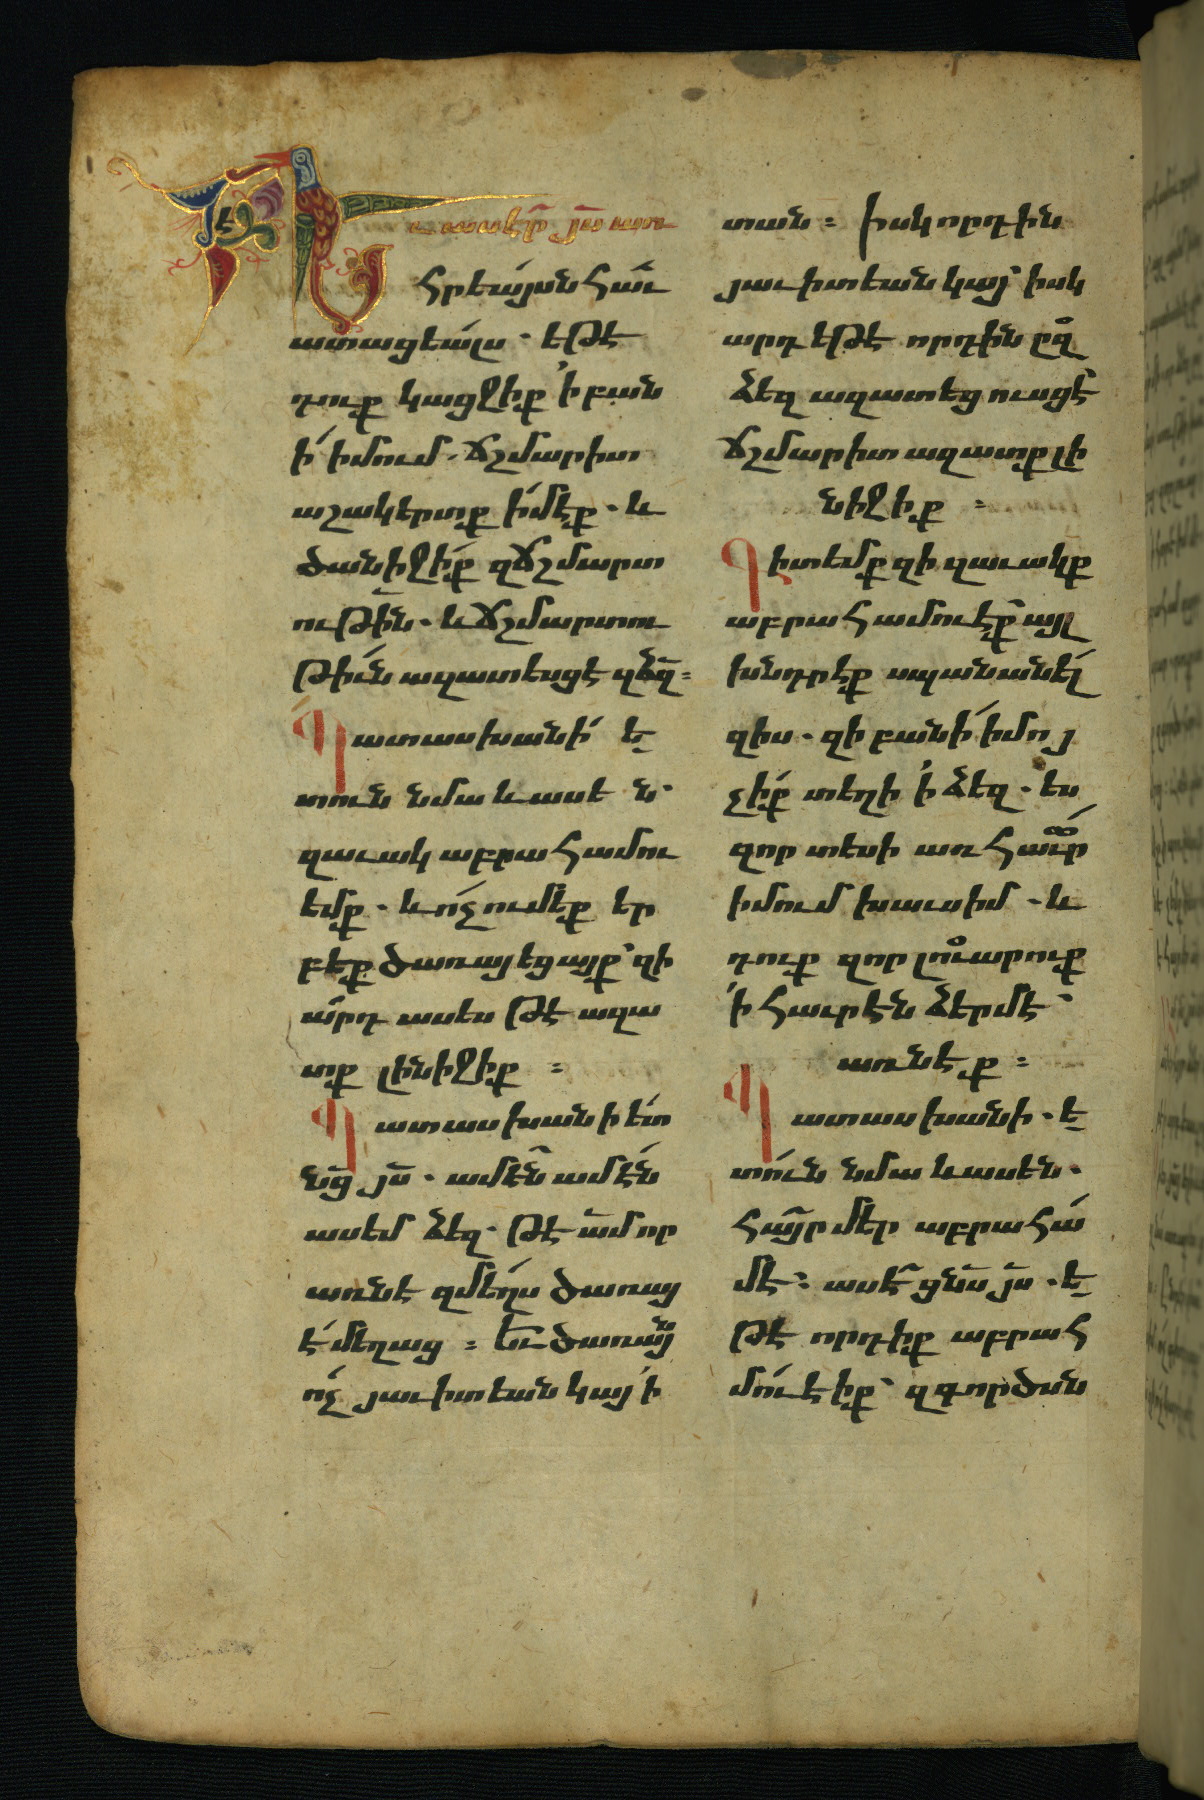 Եւ ասէր յս առ
հրեայսն հաւ
ատացեալս . եթէ
դուք կացջիք ՛ի բան
ի իմում . ճշմարիտ
աշակերտք իմէք . և
ծանիջիք զճշմարտ
ութին . և ճշմարտու
թիւն ազատեսցէ զձզ :
Պատասխանի ե
տուն նմա և ասեն .
զաւակ աբրահամու
եմք . և ոչ ումեք եր
բեք ծառայեցայք՝ զի
արդ ասես թէ ազա
տք լինիջիք :
Պատասխանի ետ
նց յս . ամէն ամէն
ասեմ ձեզ . թէ ամ որ
առնէ զմեղս ծառայ
է մեղաց : Եւ ծառայ
ոչ յաւիտեան կայ ՛ի
տան : Իսկ որդին
յաւիտեան կայ՝ իսկ
արդ եթէ որդին ըզ
ձեզ ազատեցուսցէ՝
ճշմարիտ ազատք լի
նիջիք :
Գիտեմք զի զաւակք
աբրահամու էք այլ
խնդրէք սպանանել
զիս . զի բանի իմոյ
չիք տեղի ՛ի ձեզ . ես
զոր տեսի առ հաւր
իմում խաւսիմ . և
դուք զոր լուարուք
՛ի հաւրէն ձերմէ՝
առնէք :
Պատասխանի . ե
տուն նմա և ասեն .
հայր մեր աբրահա
մէ : ասէ ցնս յս . ե
թէ որդիք աբրահ
մու էիք՝ զգործսն